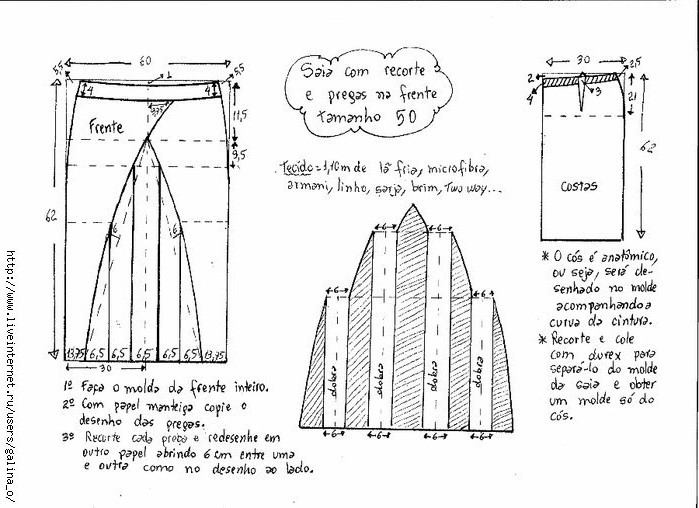 60
5,5
5,5
1
4
4
3,5
11,5
Frente
9,5
62
6
6
13,75 6,5 6,5 6,5 6,5 13,75
30
Saia com recorte
e pregas na frente
tamanho 50
Tecido = 1,10m de lã fria, microfibra,
armani, linho, sarja, brim, Two way...
6
6
6
6
dobra
dobra
dobra
dobra
6
6
6
6
30
2,5
2
4
3
21
62
costas
* O cós é anatômico,
ou seja, será de-
senhado no molde
acompanhando a
curva da cintura.
* Recorte e cole
com durex para
separá-lo do molde
da saia e obter
um molde só do
cós.
1º Faça o molde da frente inteiro.
2º Com papel manteiga copie o
desenho das pregas.
3º Recorte cada prega e redesenhe em
outro papel abrindo 6 cm entre uma
e outra como no desenho ao lado.
http://www.liveinternet.ru/users/galina_o/